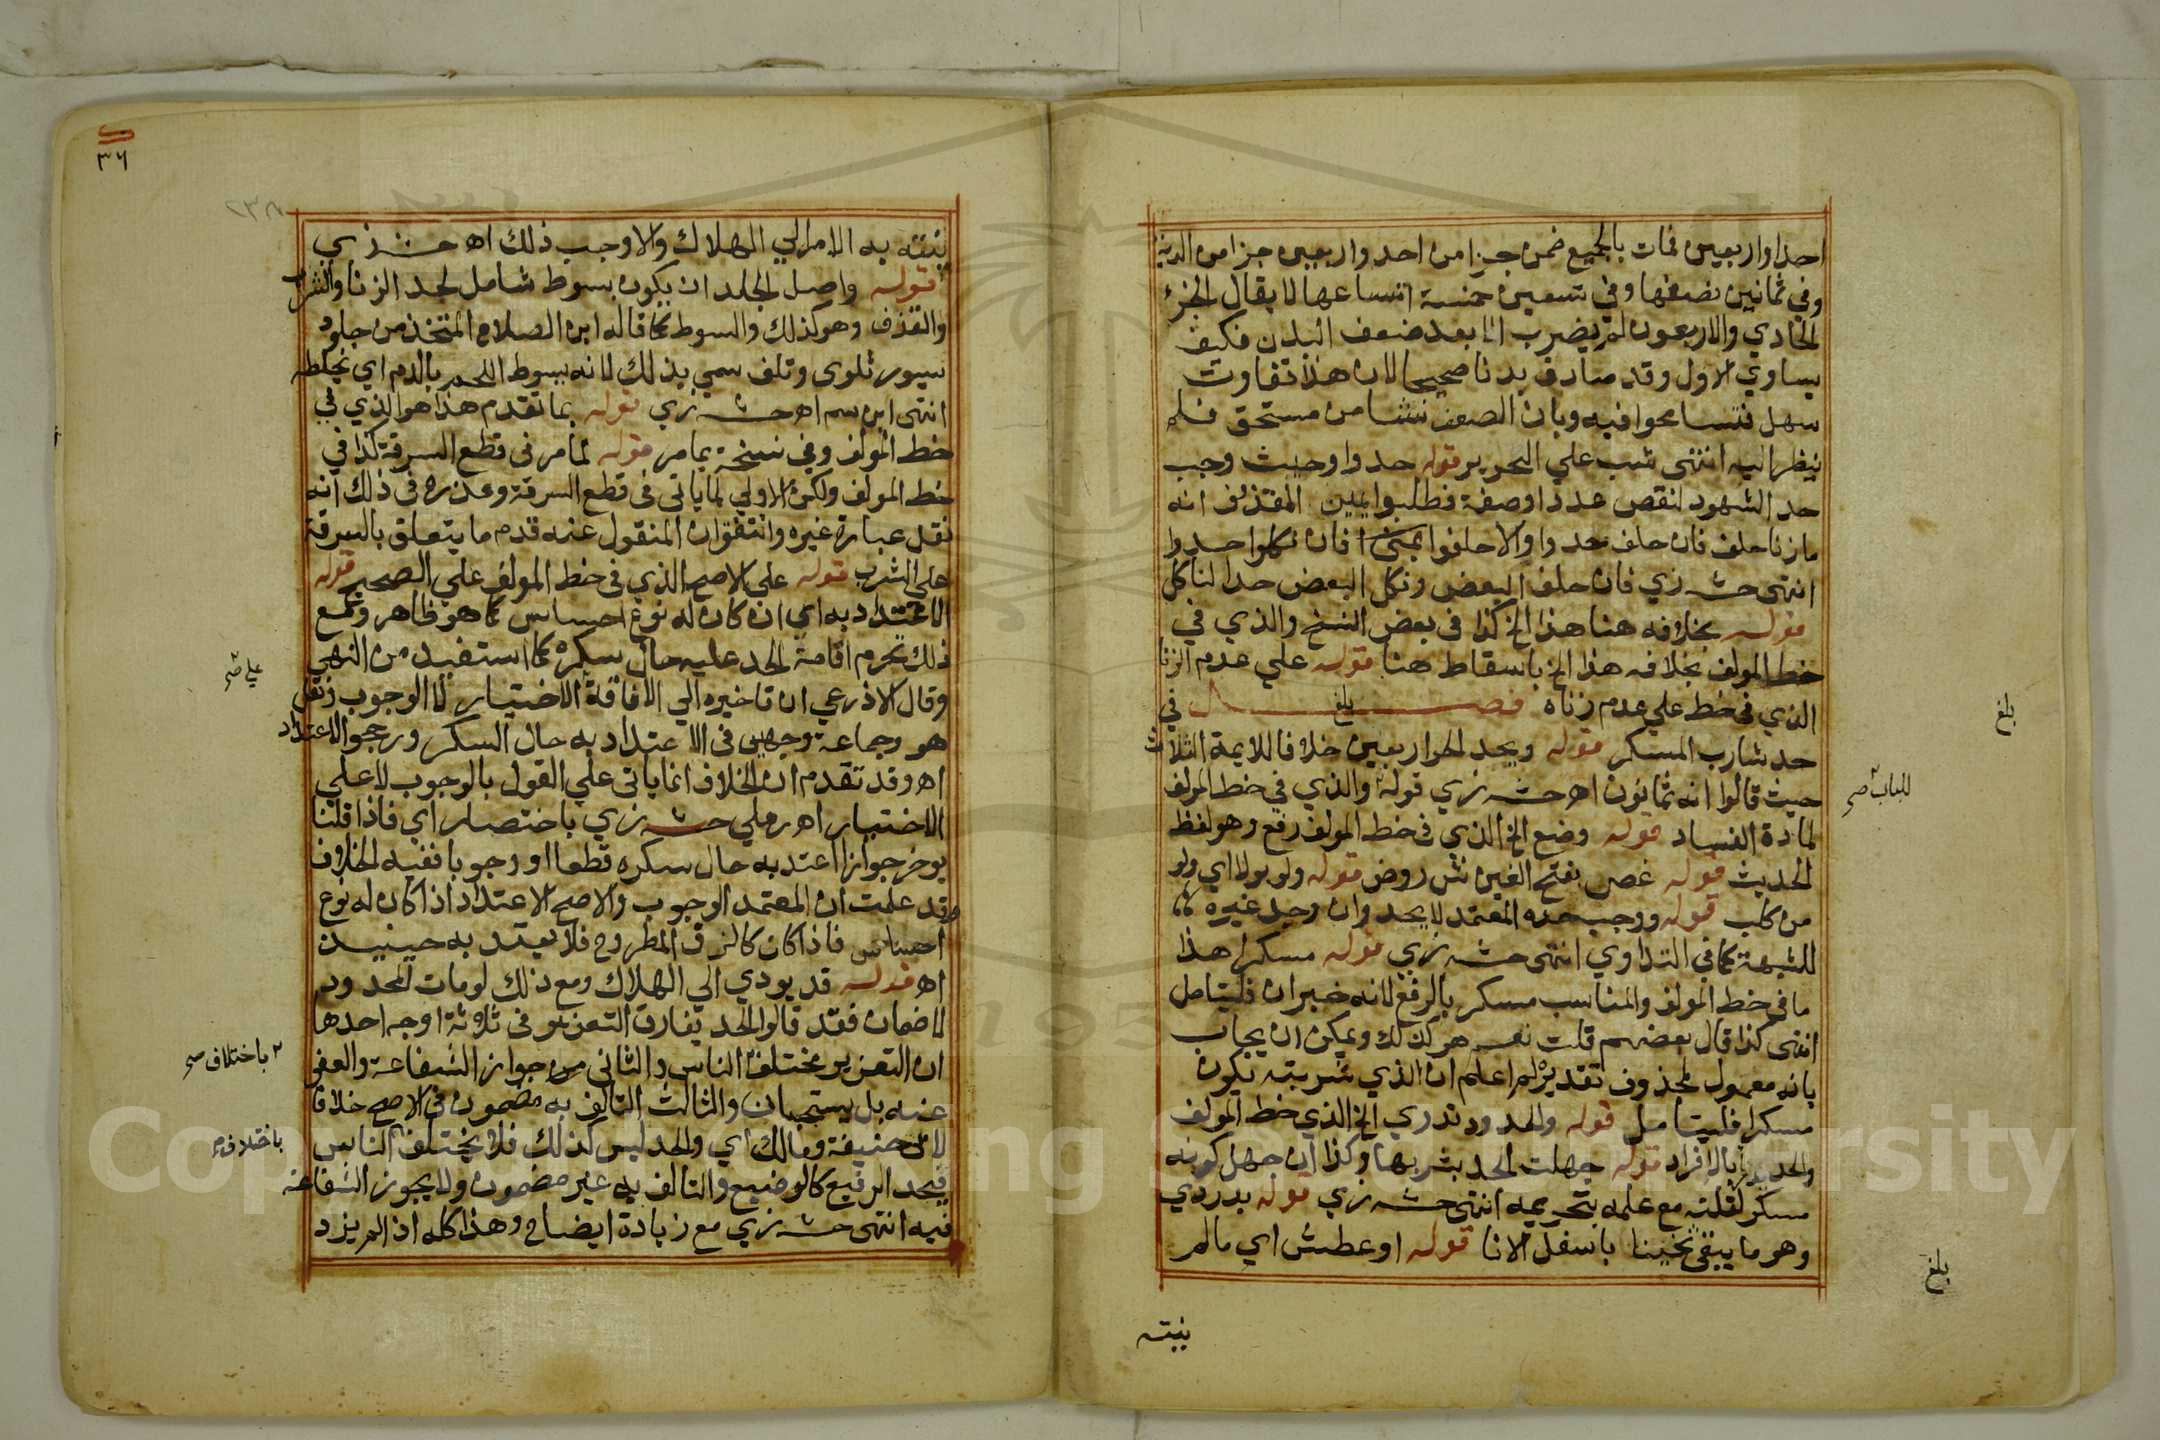 احدا واربعين فمات بالجميع ضمن جزا من احد واربعين جزا من الدية
وفي ثمانين نصفها وفي تسعين خمسة اتساعها لا يقال الجزء
الحادي والاربعون لم يضرب الا بعد ضعف البدن فكيف
يساوي الاول وقد صادف بدنا صحيحا لان هذا تفاوت
سهل فتسامحوا فيه وبان الضعف نشا من مستحق فلم
ينظر اليه انتهى شب علي التحرير قوله حدوا وحيث وجب
حد الشهود لنقص عدد او صفة فطلبوا يمين المقذوف انه
ما زنا حلف فان حلف حدوا والا حلفوا فان نكلوا حدوا
انتهى حش زي فان حلف البعض ونكل البعض حد الناكل
قوله بخلافه هنا هذا الخ كذا في بعض النسخ والذي في
خط المولف بخلافه هذا الخ باسقاط هنا قوله علي عدم الزنا
الذي في خط علي عدم زناه فصل في
بلغ
حد شارب المسكر قوله ويحد الحر اربعين خلافا للايمة الثلاث
حيث قالوا انه ثمانون اه حش زي قوله والذي في خط المولف
لمادة الفساد قوله وضع الخ الذي في خط المولف رفع وهو لفظ
الحديث قوله غص بفتح الغين ش روض قوله ولو بولا اي ولو
من كلب قوله ووجب حده المعتمد لا يحد وان وجد غيره
للشبهة كما في التداوي انتهى حش زي قوله مسكرا هذا
ما في خط المولف والمناسب مسكر بالرفع لانه خبر ان فليتامل
انتهى كذا قال بعضهم قلت نعم هو كذلك ويمكن ان يجاب
بانه معمول لمحذوف تقديره لم اعلم ان الذي شربته يكون
مسكرا فليتامل قوله والحدود تدري الخ الذي خط المولف
والحد يدرا بالافراد قوله جهلت الحد بشربها وكذا ان جهل كونه
مسكر لقلته مع علمه بتحريمه انتهى حش زي قوله بدردي
وهو ما يبقى ثخينا باسفل الانا قوله او عطش اي ما لم
بلغ
للباب صح
بلغ
ينته
٣٦
ينته به الامر الي الهلاك والا وجب ذلك اه حش زي
قوله واصل الجلد ان يكون بسوط شامل لحد الزنا والشرب
والقذف وهو كذلك والسوط كما قاله ابن الصلاح المتخذ من جلود
سيور تلوى وتلف سمي بذلك لانه يسوط اللحم بالدم اي يخلطه
انتهى ابن سم اه حش زي قوله بما تقدم هذا هو الذي في
خط المولف وفي نسخة بما مر قوله لما مر في قطع السرقة كذا في
خط المولف ولكن الاولي لما ياتي في قطع السرقة وعذره في ذلك انه
نقل عبارة غيره واتفق ان المنقول عنه قدم ما يتعلق بالسرقة
علي الشرب قوله علي الاصح الذي في خط المولف علي الصحيح قوله
الاعتداد به اي ان كان له نوع احساس كما هو ظاهر ومع
ذلك تحرم اقامة الحد عليه حال سكره كما استفيد من النهي
وقال الاذرعي ان تاخيره الي الافاقة الاختيار لا الوجوب ونقل
هو وجماعة وجهين في الاعتداد به حال السكر ورجحوا الاعتداد
اه وقد تقدم ان الخلاف انما ياتي علي القول بالوجوب لا علي
الاختيار اه رملي حش زي باختصار اي فاذا قلنا
يوخر جوازا اعتد به حال سكره قطعا او وجوبا ففيه الخلاف
وقد علمت ان المعتمد الوجوب والاصح الاعتداد اذا كان له نوع
احساس فاذا كان كالزق المطروح فلا يعتد به حينيذ
اه قوله قد يودي الي الهلاك ومع ذلك لو مات المحدود
لا ضمان فقد قالوا الحد يفارق التعزير في ثلاثة اوجه احدها
ان التعزير مختلف الناس والثاني من جواز الشفاعة والعفو
عنه بل يستحبان والثالث التالف به مضمون في الاصح خلافا
لابي حنيفة ومالك اي والحد ليس كذلك فلا يختلف الناس
فيحد الرفيع كالوضيع والتالف به غير مضمون ولا يجوز الشفاعة
فيه انتهى حش زي مع زيادة ايضاح وهذا كله اذا لم يزد
علي صح
باختلاف صح
باختلاف
Copyright © King Saud University
1957